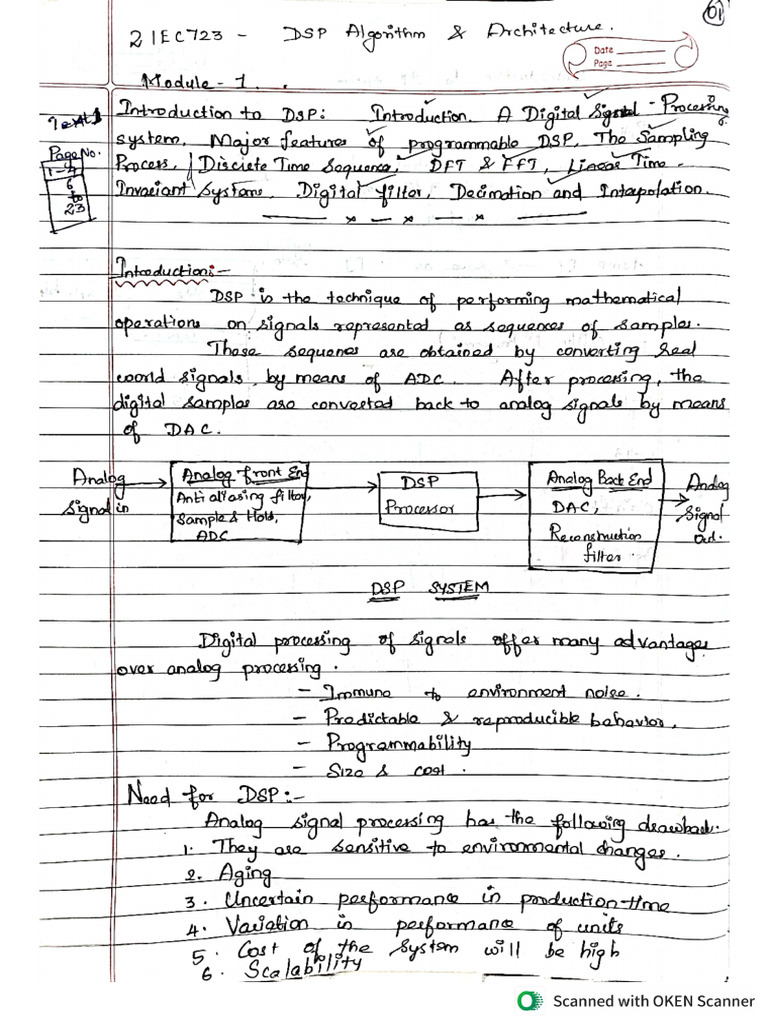 01
21EC723 - DSP Algorithm & Architecture.
Date
Page
Module - 1.
Text 1
Page No.
1-4
6
to
23
Introduction to DSP: Introduction. A Digital Signal - Processing
system, Major features of programmable DSP, The Sampling
Process, Discrete Time Sequence, DFT & FFT, Linear Time.
Invariant Systems, Digital filter, Decimation and Interpolation.
Introduction:-
DSP is the technique of performing mathematical
operations on signals represented as sequences of samples.
These sequences are obtained by converting real
world signals by means of ADC. After processing, the
digital samples are converted back to analog signals by means
of DAC.
Analog
Signal in
Analog front End
Anti aliasing filter,
Sample & Hold,
ADC
DSP
Processor
Analog Back End
DAC,
Reconstruction
filter.
Analog
Signal
Out.
DSP SYSTEM
Digital processing of signals offer many advantages
over analog processing.
- Immune to environment noise.
- Predictable & reproducible behavior.
- Programmability
- Size & cost.
Need for DSP:-
Analog signal processing has the following drawback.
1. They are sensitive to environmental changes.
2. Aging
3. Uncertain performance in production-time
4. Variation in performance of units
5. Cost of the system will be high
6. Scalability
Scanned with OKEN Scanner